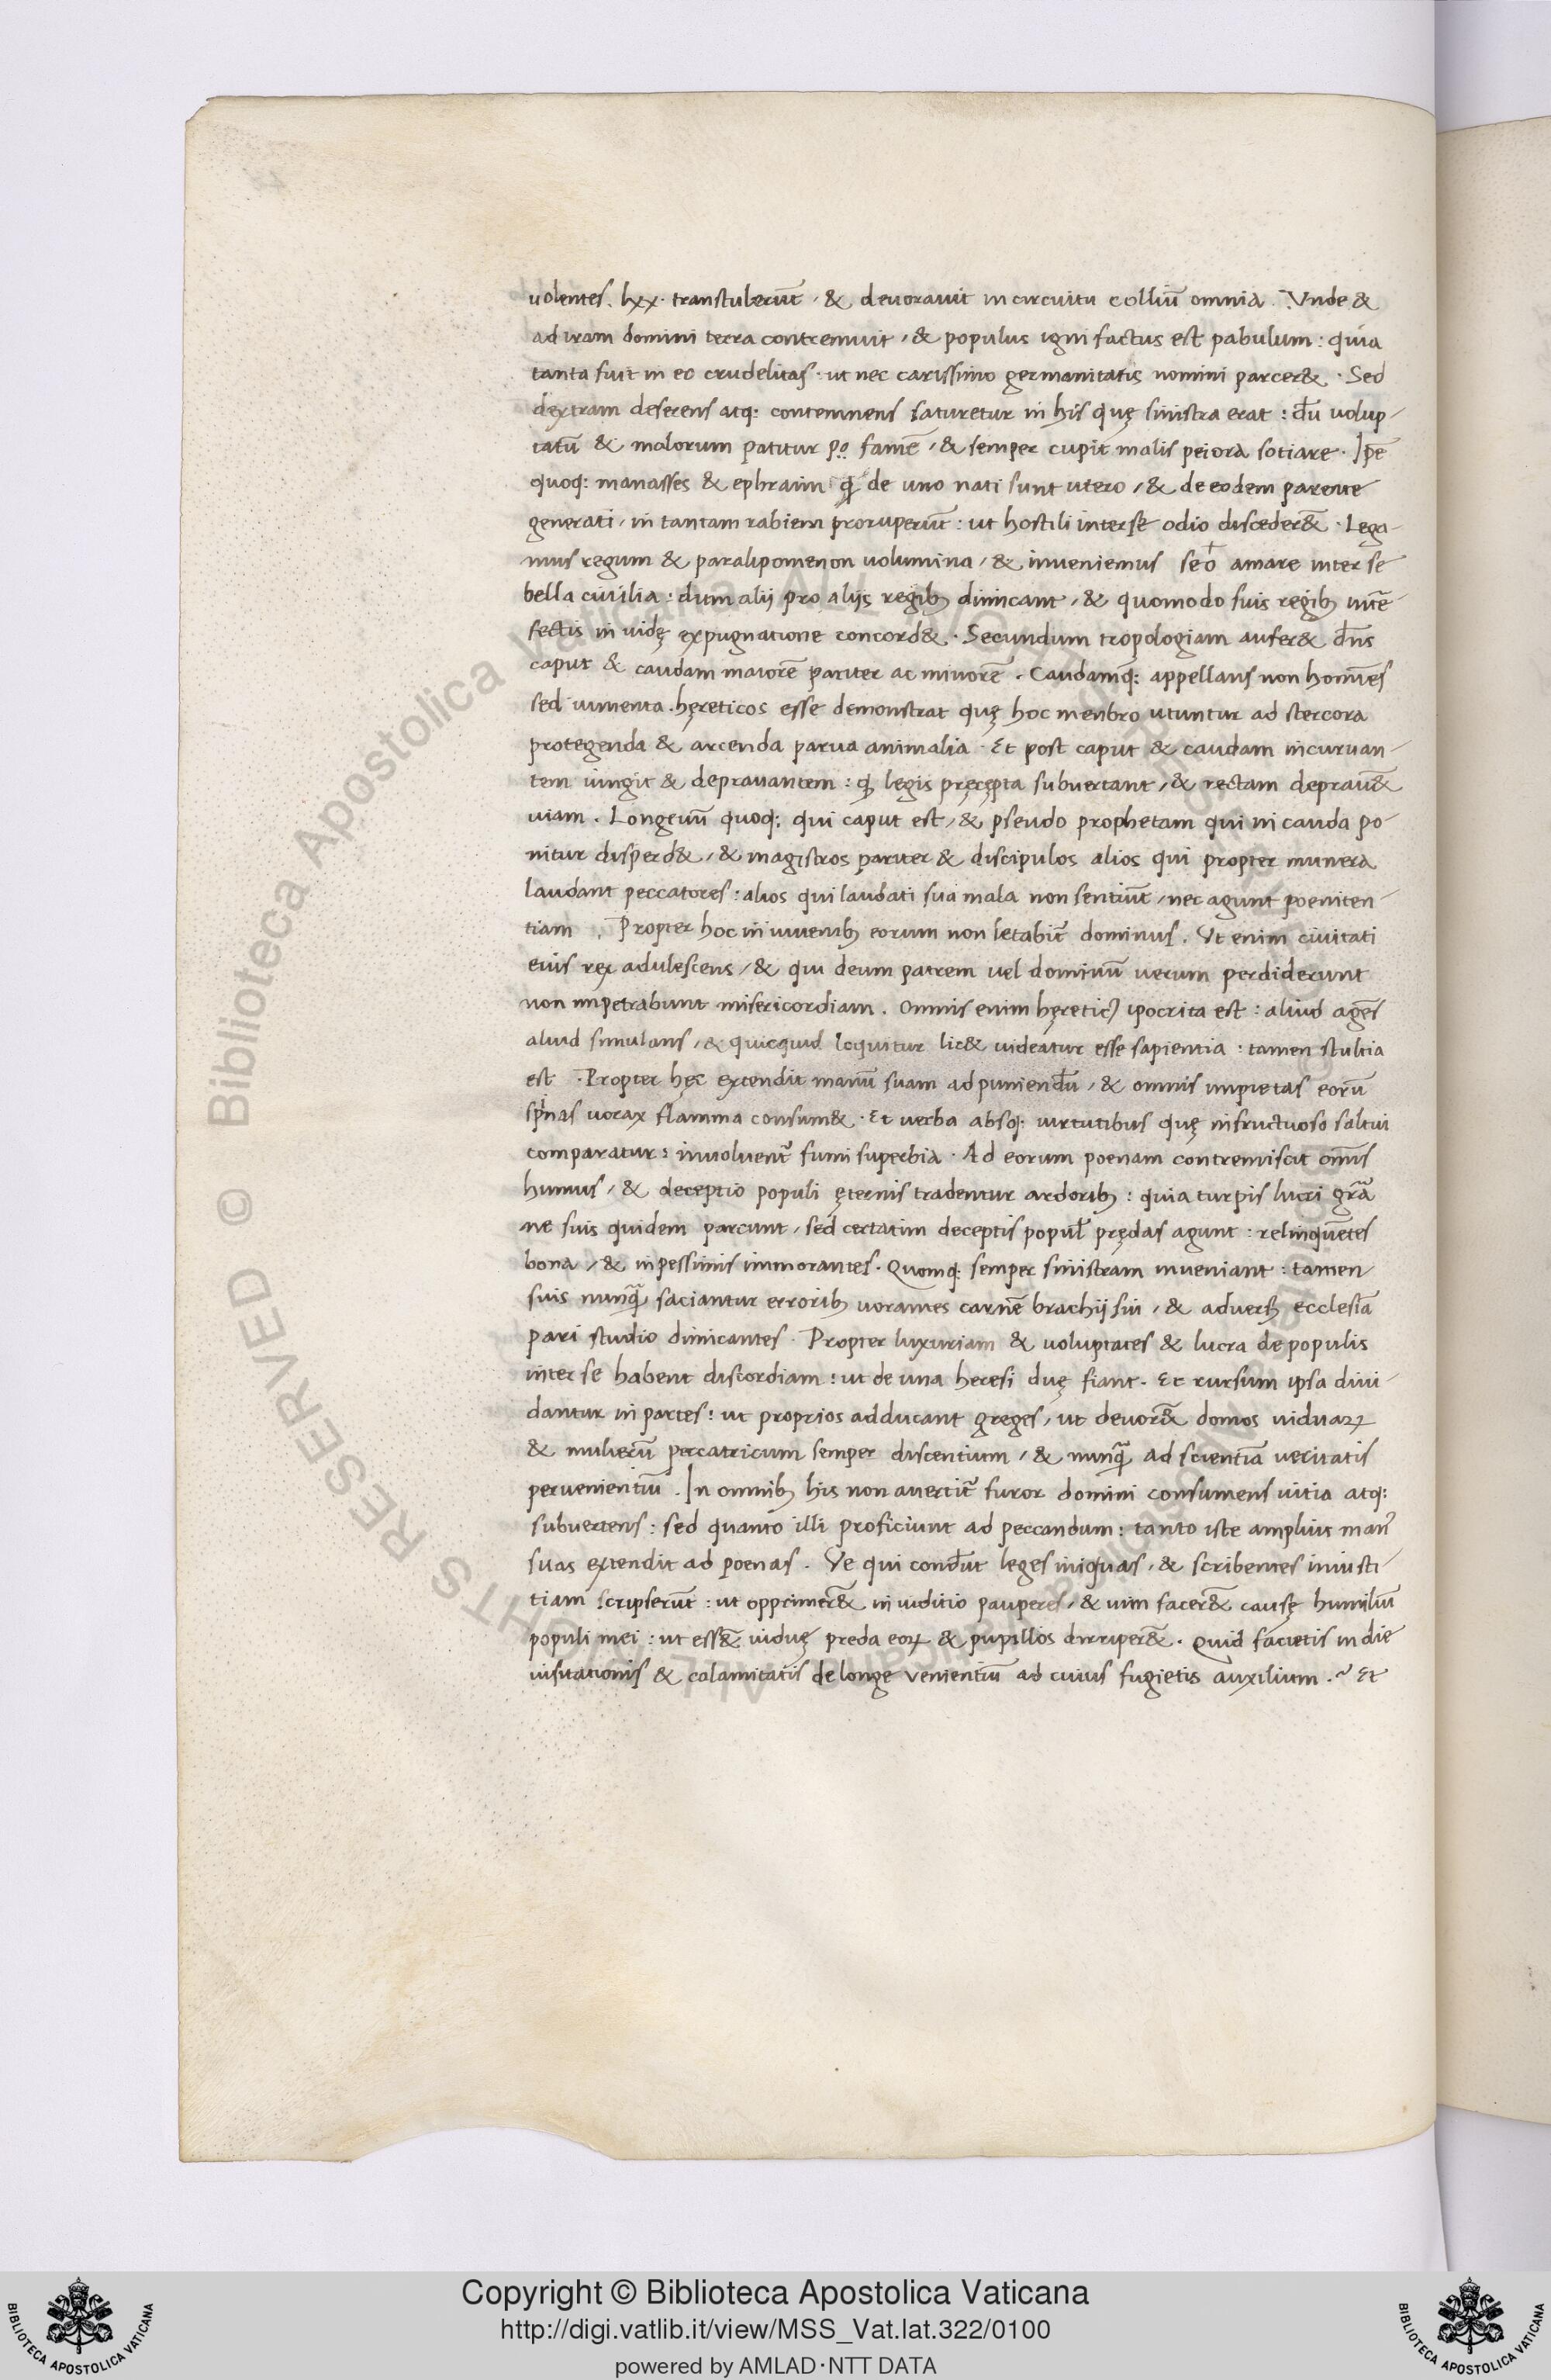 uolentes. lxx. transtulerūt, & deuorauit in circuitu colliū omnia. Vnde &
ad iram domini terra contremuit, & populus igni factus est pabulum: quia
tanta fuit in eo crudelitas. ut nec carissimo germanitatis nomini parcer&. Sed
dextram deserens atq: contemnens saturetur in his quę sinistra erat: dū uolup-
tatū & malorum patitur famē, & semper cupit malis peiora sotiare. Ipē
quoq: manasses & ephraim q̨ de uno nati sunt utero, & de eodem parente
generati, in tantam rabiem proruperūt: ut hostili inter se odio disceder&̄. Lega-
mus regum & paralipomenon uolumina, & inueniemus amare inter se
bella ciuilia: dum alij pro alijs regib; dimicant, & quomodo suis regib; intē-
fectis in iudę expugnatione concord&. Secundum tropologiam aufer& dn̄s
caput & caudam maiorē pariter ac minorē. Caudamq: appellans non homīes
sed iumenta. hęreticos esse demonstrat quę hoc menbro utuntur ad stercora
protegenda & arcenda parua animalia. Et post caput & caudam incuruan-
tem iungit & deprauantem: q̨ legis pręcępta subuertant, & rectam deprau&̄
uiam. Longeuū quoq: qui caput est, & pseudo prophetam qui in cauda po-
nitur disperd&, & magistros pariter & discipulos alios qui propter munera
laudant peccatores: alios qui laudati sua mala non sentiūt, nec agunt poeniten-
tiam. Propter hoc in iuuenib; eorum non letabit̄ dominus. Vt enim ciuitati
eius rex adulescens, & qui deum patrem uel dominū uerum perdiderunt
non impetrabunt misericordiam. Omnis enim hęretic9 ipocrita est: aliud agēs
aliud simulans, & quicquid loquitur lic& uideatur esse sapientia: tamen stultia
est. Propter hęc extendit manū suam ad puniendū, & omnis impietas eorū
spinas uorax flamma consum&. Et uerba absq: uirtutibus quę infructuoso saltui
comparatur: inuoluent̄ fumi superbia. Ad eorum poenam contremiscit om̄is
humus, & deceptio populi ęternis tradentur ardorib;: quia turpis lucri gr̄a
ne suis quidem parcunt, sed certatim deceptis popul' prędas agunt: relinquētes
bona, & in pessimis immorantes. Quomq: semper sinistram inueniant: tamen
suis nunq̄ saciantur errorib; uorantes carnē brachij sui, & aduers; ecclesiā
pari studio dimicantes. Propter luxuriam & uoluptates & lucra de populis
inter se habent discordiam: ut de una heresi duę fiant. Et rursum ipsa diui-
dantur in partes: ut proprios adducant greges, ut deuor&̄ domos uiduaꝝ
& mulierū peccatricum semper discentium, & nunq̄ ad scientiā ueritatis
peruenientiū. In omnib; his non auertit̄ furor domini consumens uitia atq:
subuertens: sed quanto illi proficiunt ad peccandum: tanto iste amplius man9
suas extendit ad poenas. Ve qui condūt leges iniquas, & scribentes iniusti-
tiam scripserūt: ut opprimer&̄ in iuditio pauperes, & uim facer&̄ causę humiliū
populi mei: ut ess&̄ uiduę preda eoꝝ & pupillos diriper&̄. Quid facietis in die
uisitationis & calamitatis de longe uenientiū ad cuius fugietis auxilium.~ Et
Copyright © Biblioteca Apostolica Vaticana
http://digi.vatlib.it/view/MSS_Vat.lat.322/0100
powered by AMLAD·NTT DATA